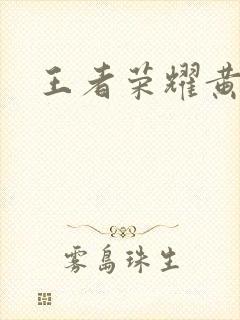 王者荣耀黄
雾岛珠生